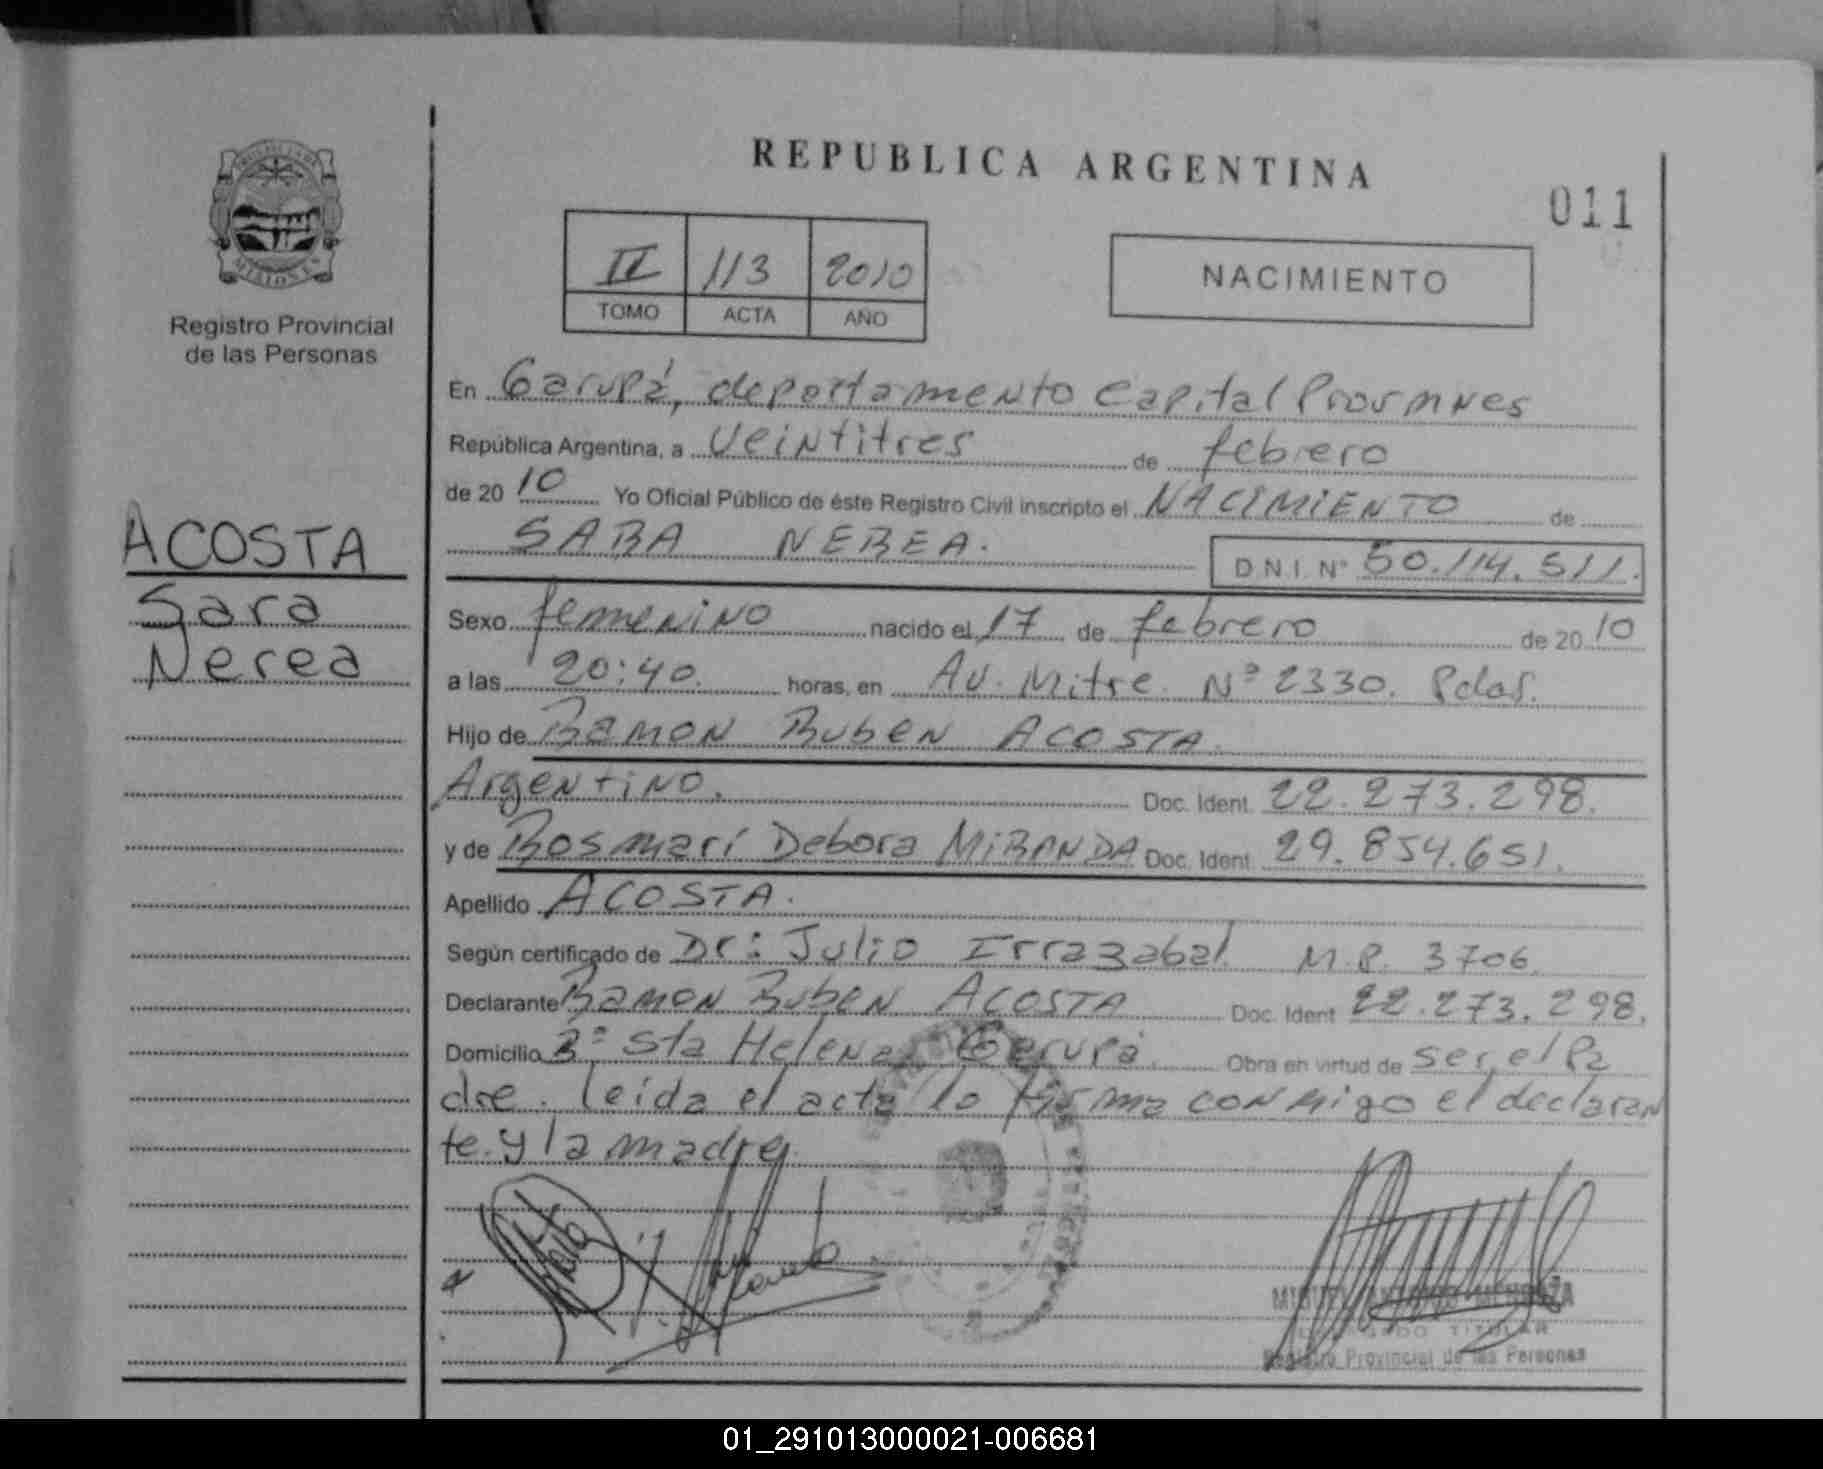 REPUBLICA ARGENTINA
011
II 113 2010
TOMO ACTA AÑO
NACIMIENTO
MISIONES
Registro Provincial
de las Personas
ACOSTA
Sara
Nerea
En Garupá, departamento Capital Prov mnes
República Argentina, a veintitres de febrero
de 2010 Yo Oficial Público de éste Registro Civil inscripto el NACIMIENTO de
SARA NEREA.
D.N.I. N° 50.114.511.
Sexo femenino nacido el 17 de febrero de 2010
a las 20:40. horas, en Av. Mitre. N° 2330. Pdas.
Hijo de Ramon Ruben ACOSTA.
Argentino. Doc. Ident. 22.273.298.
y de Rosmarí Debora MIRANDA Doc. Ident. 29.854.651.
Apellido ACOSTA.
Según certificado de Dr: Julio Irrazabal M.P. 3706
Declarante Ramon Ruben ACOSTA Doc. Ident 22.273.298.
Domicilio B° Sta Helena Garupá. Obra en virtud de ser el pa
dre. leída el acta la firma conmigo el declaran
te. y la madre.
MIGUEL ANTONIO MENDOZA
DELEGADO TITULAR
Registro Provincial de las Personas
01_291013000021-006681